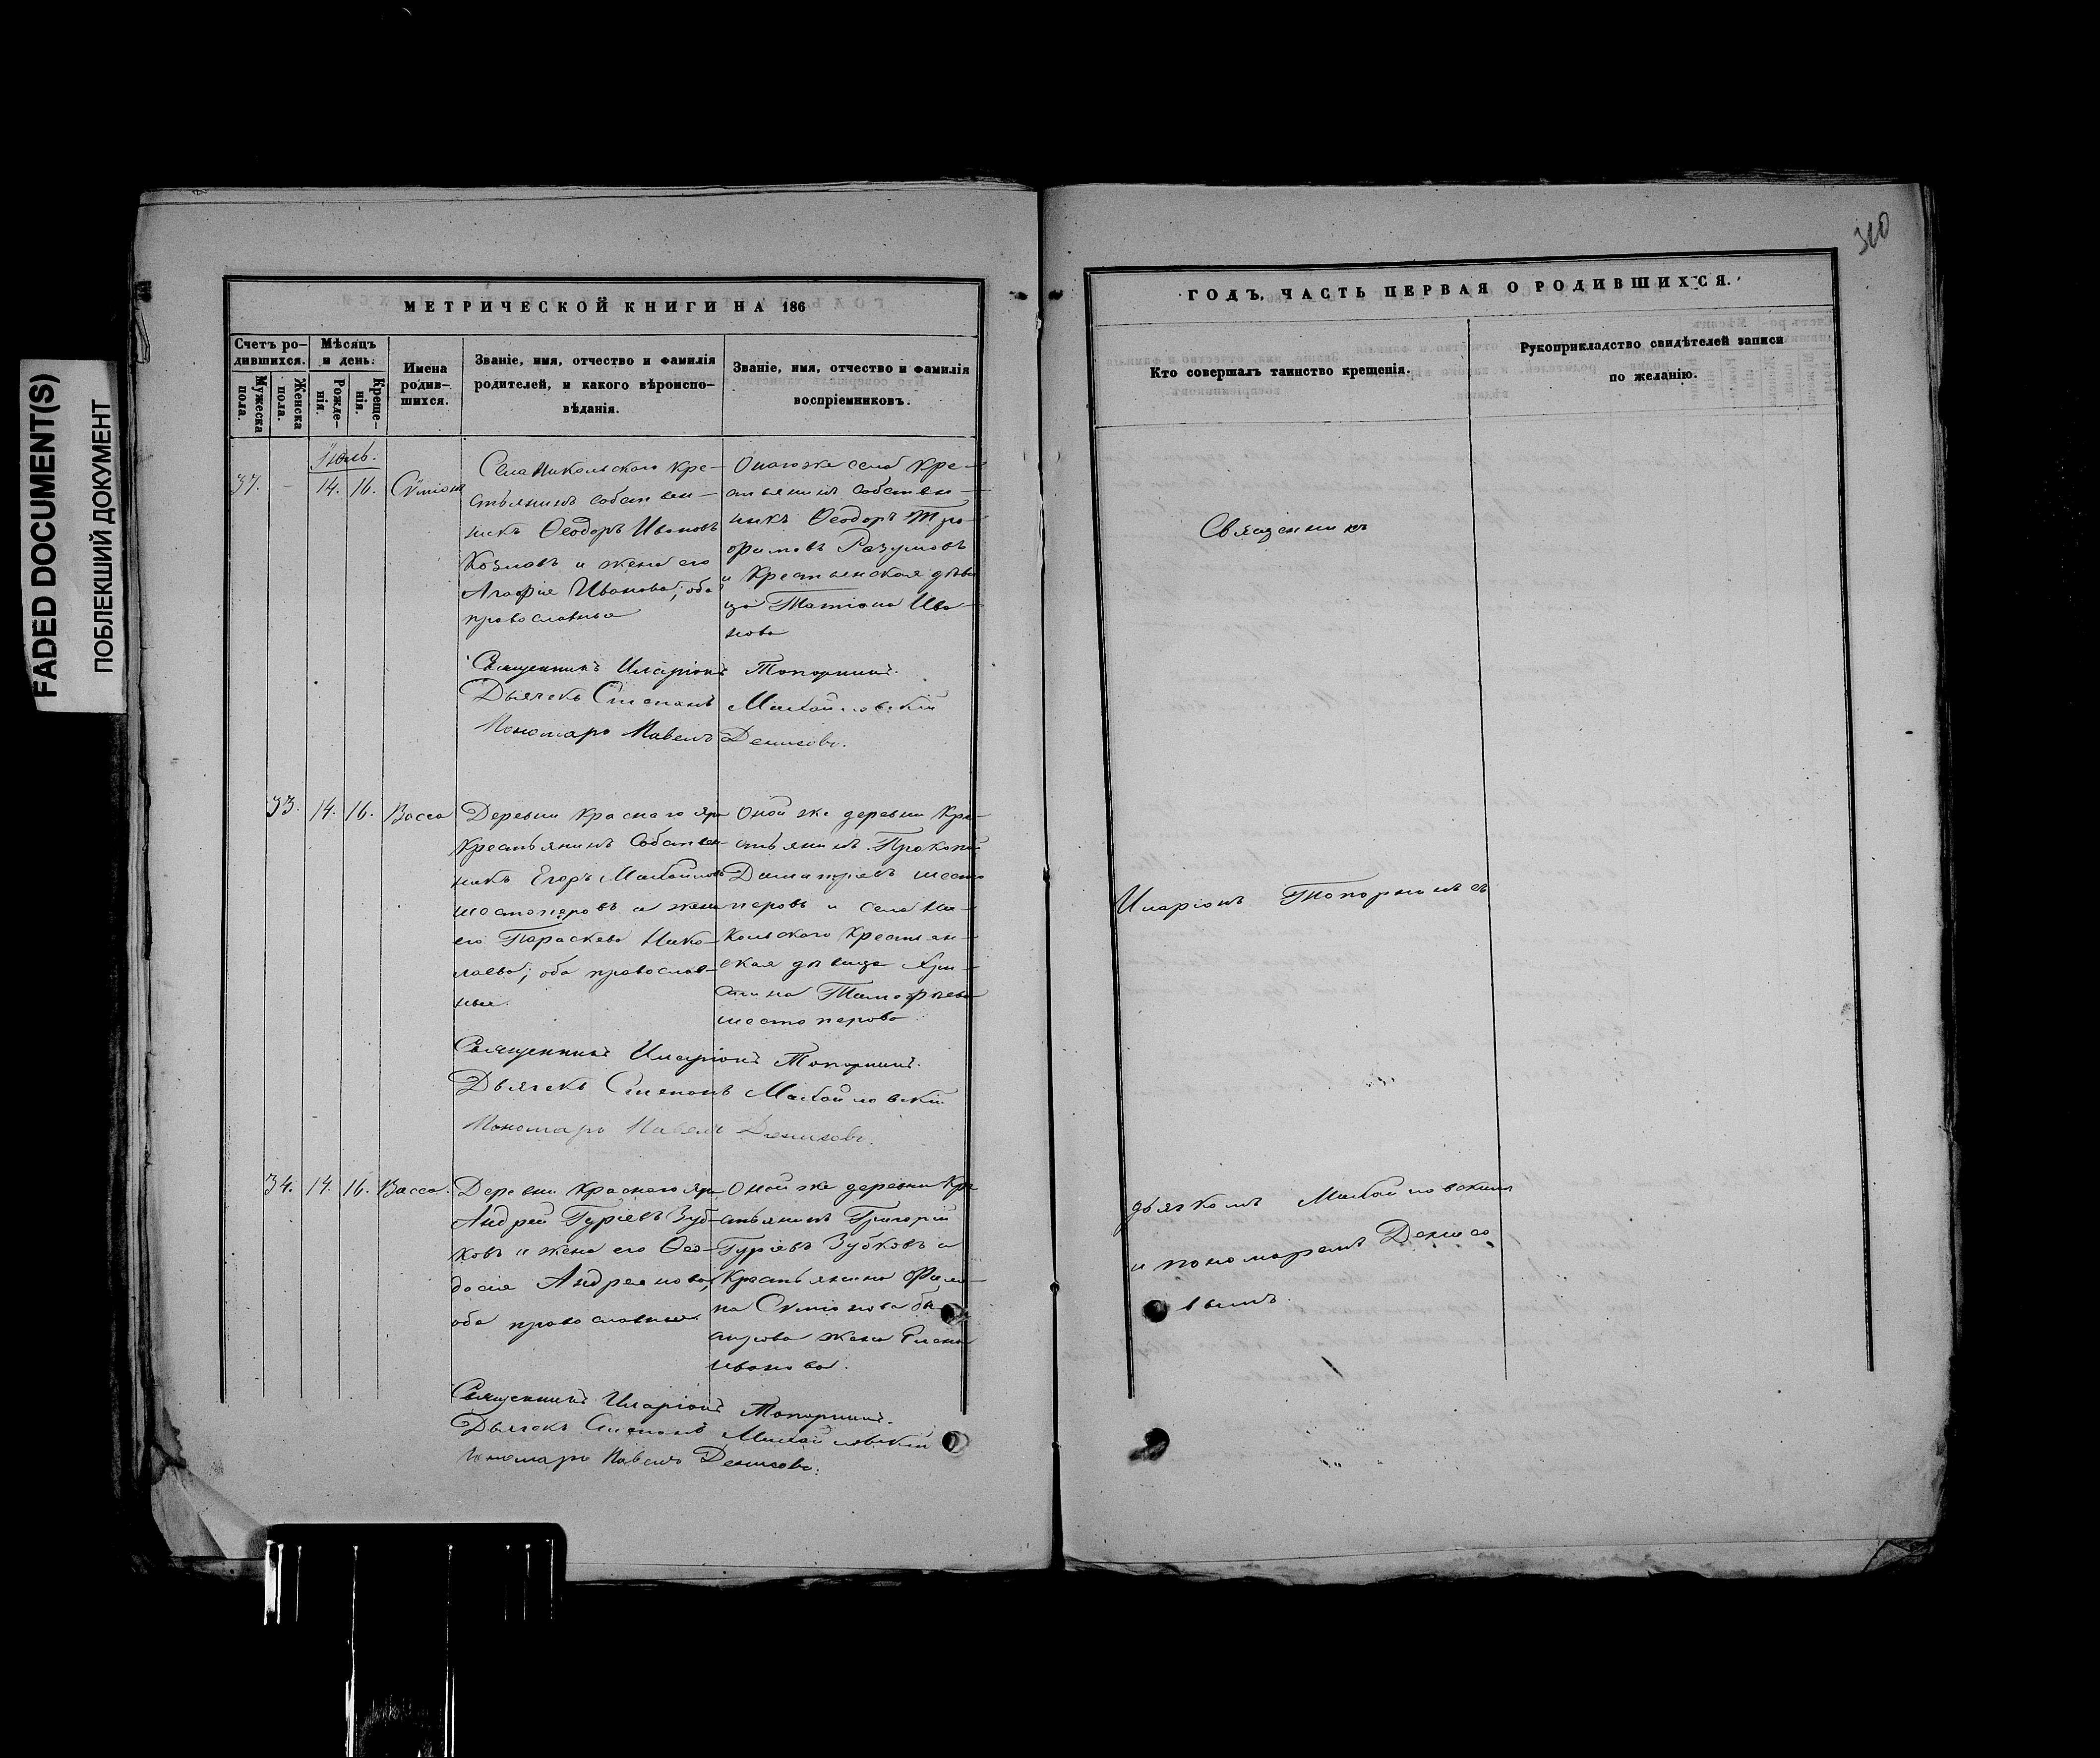 FADED DOCUMENT(S)
ПОБЛЕКШИЙ ДОКУМЕНТ
310
МЕТРИЧЕСКОЙ КНИГИ НА 186
Счетъ ро-
дившихся.
Мужеска
пола.
Женска
пола.
Мѣсяцъ
и день.
Рожде-
нія.
Креще-
нія.
Имена
родив-
шихся.
Званіе, имя, отчество и фамилія
родителей, и какого вѣроиспо-
вѣданія.
Званіе, имя, отчество и фамилія
воспріемниковъ.
Іюль.
37. - 14. 16. Сѵмеонъ
Села Никольскаго кре-
стьянинъ собствен-
никъ Ѳеодоръ Ивановъ
Козловъ и жена его
Агафія Иванова; оба
православные
Онагоже села кре-
стьянинъ собствен-
никъ Ѳеодоръ Тро-
фимовъ Разумовъ
и крестьянская дѣви
ца Татіана Ива-
нова
Священникъ Иларіонъ Топорнинъ.
Дьячекъ Степанъ Михайловскій
Пономарь Павелъ Денисовъ.
33. 14. 16. Васса
Деревни Краснаго яра
Крестьянинъ Собствен-
никъ Егоръ Михайловъ
Шестоперовъ и жена
его Параскева Нико-
лаева; оба православ-
ные.
Оной же деревни Кре-
стьянинъ Прокопій
Шесто
перовъ и села Ни-
кольскаго Крестьян-
ская дѣвица Хри-
стина Тимофѣева
Шестоперова
Священникъ Иларіонъ Топорнинъ.
Дьячекъ Степанъ Михайловскій
Пономарь Павелъ Денисовъ.
34. 14. 16. Васса.
Деревни Краснаго яра
Андрей Гуріевъ Зуб-
ковъ и жена его Ѳео-
досія Андреянова,
оба православные.
Оной же деревни Кре
стьянинъ Григорій
Гуріевъ Зубковъ и
Крестьянина Фили-
па Сѵмеонова
жена Елена
Иванова.
Священникъ Иларіонъ Топорнинъ.
Дьячекъ Степанъ Михайловскій
Пономарь Павелъ Денисовъ.
ГОДЪ, ЧАСТЬ ПЕРВАЯ О РОДИВШИХСЯ.
Кто совершалъ таинство крещенія.
Рукоприкладство свидѣтелей записи
по желанію.
Священникъ
Иларіонъ Топорнинъ съ
дьячкомъ Михайловскимъ
и пономаремъ Денисо
вымъ.